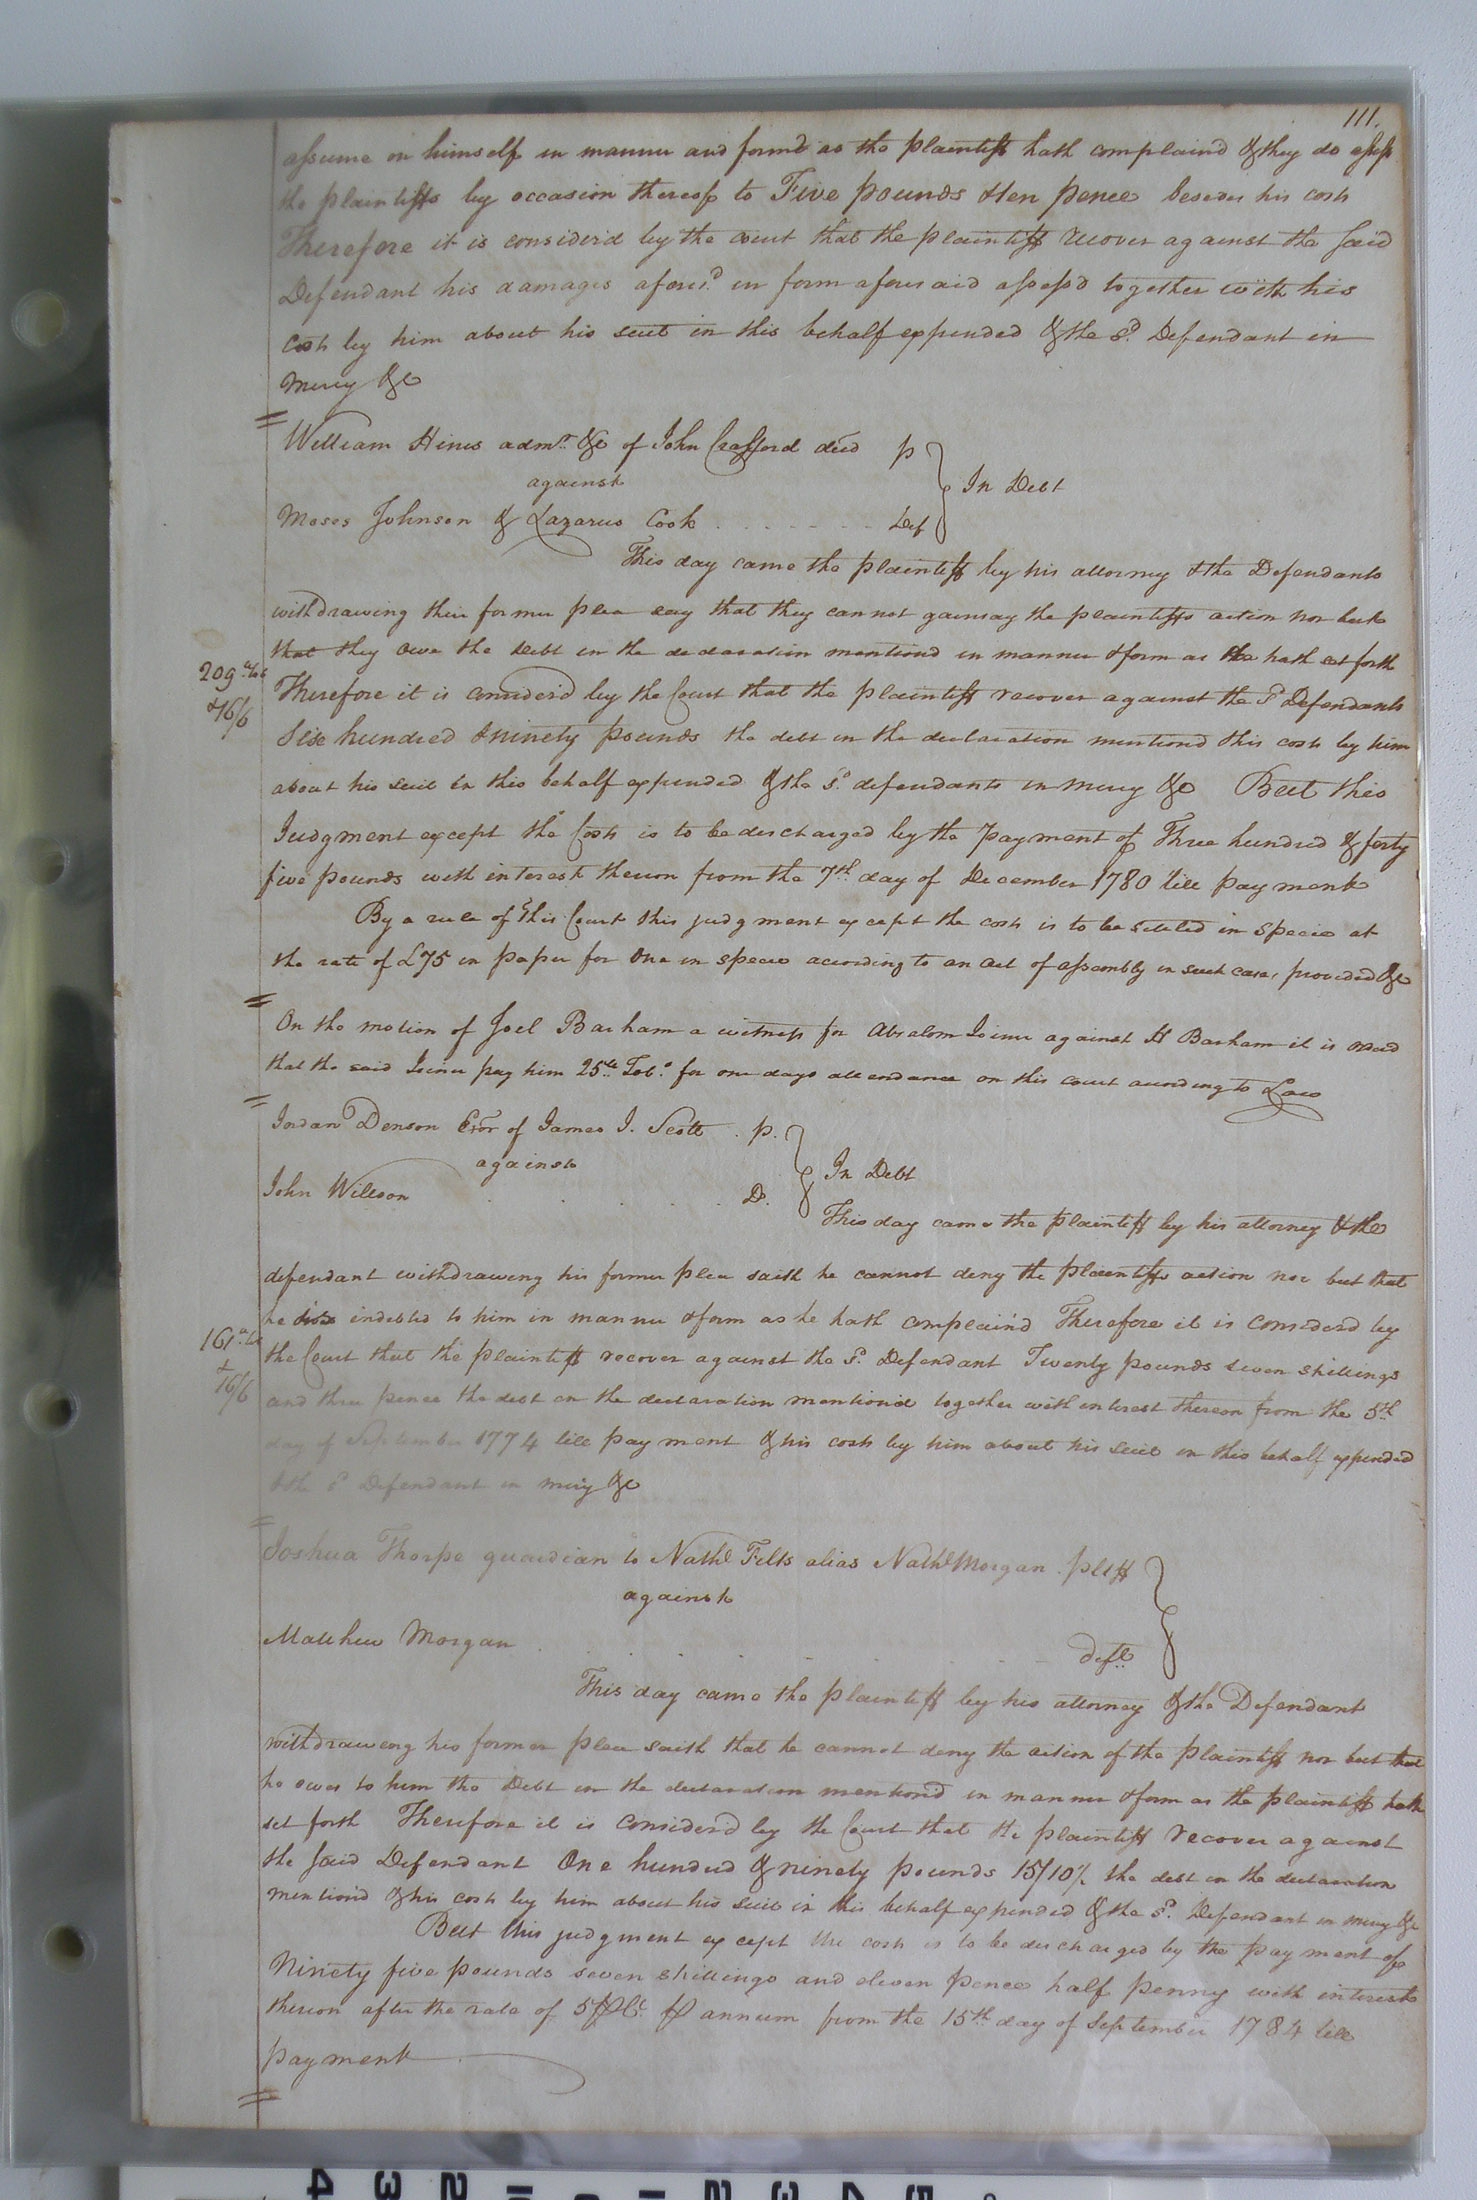 111.
assume on himself in manner and form as the plaintiff hath complaind & they do assess
the plaintiffs by occasion thereof to Five pounds & ten pence besides his costs
Therefore it is considerd by the court that the plaintiff recover against the said
Defendant his damages afores.d in form aforesaid assess'd together with his
costs by him about his suit in this behalf expended & the s.d Defendant in
mercy &c
William Hines adm.r &c of John Crafford decd p
against
Moses Johnson & Lazarus Cook Def
In Debt
This day came the plaintiff by his attorney & the Defendants
withdrawing their former plea say that they cannot gainsay the plaintiffs action nor but
that they owe the debt in the declaration mentiond in manner & form as he hath set forth
209
& 16/6
Therefore it is considerd by the Court that the plaintiff recover against the s.d Defendants
Six hundred & ninety pounds the debt in the declaration mentiond & his costs by him
about his suit in this behalf expended & the s.d defendants in mercy &c But this
Judgment except the Costs is to be discharged by the payment of Three hundred & forty
five pounds with interest thereon from the 7th day of December 1780 till payment
By a rule of this Court this judgment except the costs is to be settled in specie at
the rate of £75 in paper for One in specie according to an act of assembly in such case, provided &c
On the motion of Joel Barham a witness for Absalom Joiner against H Barham it is ordd
that the said Joiner pay him 25 Tob.o for one days attendance on this court according to Law
Jordan Denson Exor of James J. Scott . p.
against
John Willson D.
In Debt
This day came the plaintiff by his attorney & the
defendant withdrawing his former plea saith he cannot deny the plaintiffs action nor but that
he is indebted to him in manner & form as he hath complain'd Therefore it is considerd by
161
&
16/6
the Court that the plaintiff recover against the s.d Defendant Twenty pounds seven shillings
and three pence the debt in the declaration mentioned together with interest thereon from the 5th
day of September 1774 till payment & his costs by him about his suit in this behalf expended
& the s.d Defendant in mercy &c
Joshua Thorpe guardian to Nathl Felts alias Nathl Morgan . pltff
against
Matthew Morgan deft
This day came the plaintiff by his attorney & the Defendant
withdrawing his former plea saith that he cannot deny the action of the plaintiff nor but that
he owes to him the Debt in the declaration mention'd in manner & form as the plaintiff hath
set forth Therefore it is consider'd by the Court that the plaintiff recover against
the said Defendant One hundred & ninety pounds 15/10½ the debt in the declaration
mention'd & his costs by him about his suit in this behalf expended & the s.d Defendant in mercy &c
But this judgment except the costs is to be discharged by the payment of
Ninety five pounds seven shillings and eleven pence half penny with interest
thereon after the rate of 5 P Ct. P annum from the 15th day of September 1784 till
payment
4 3 2 1